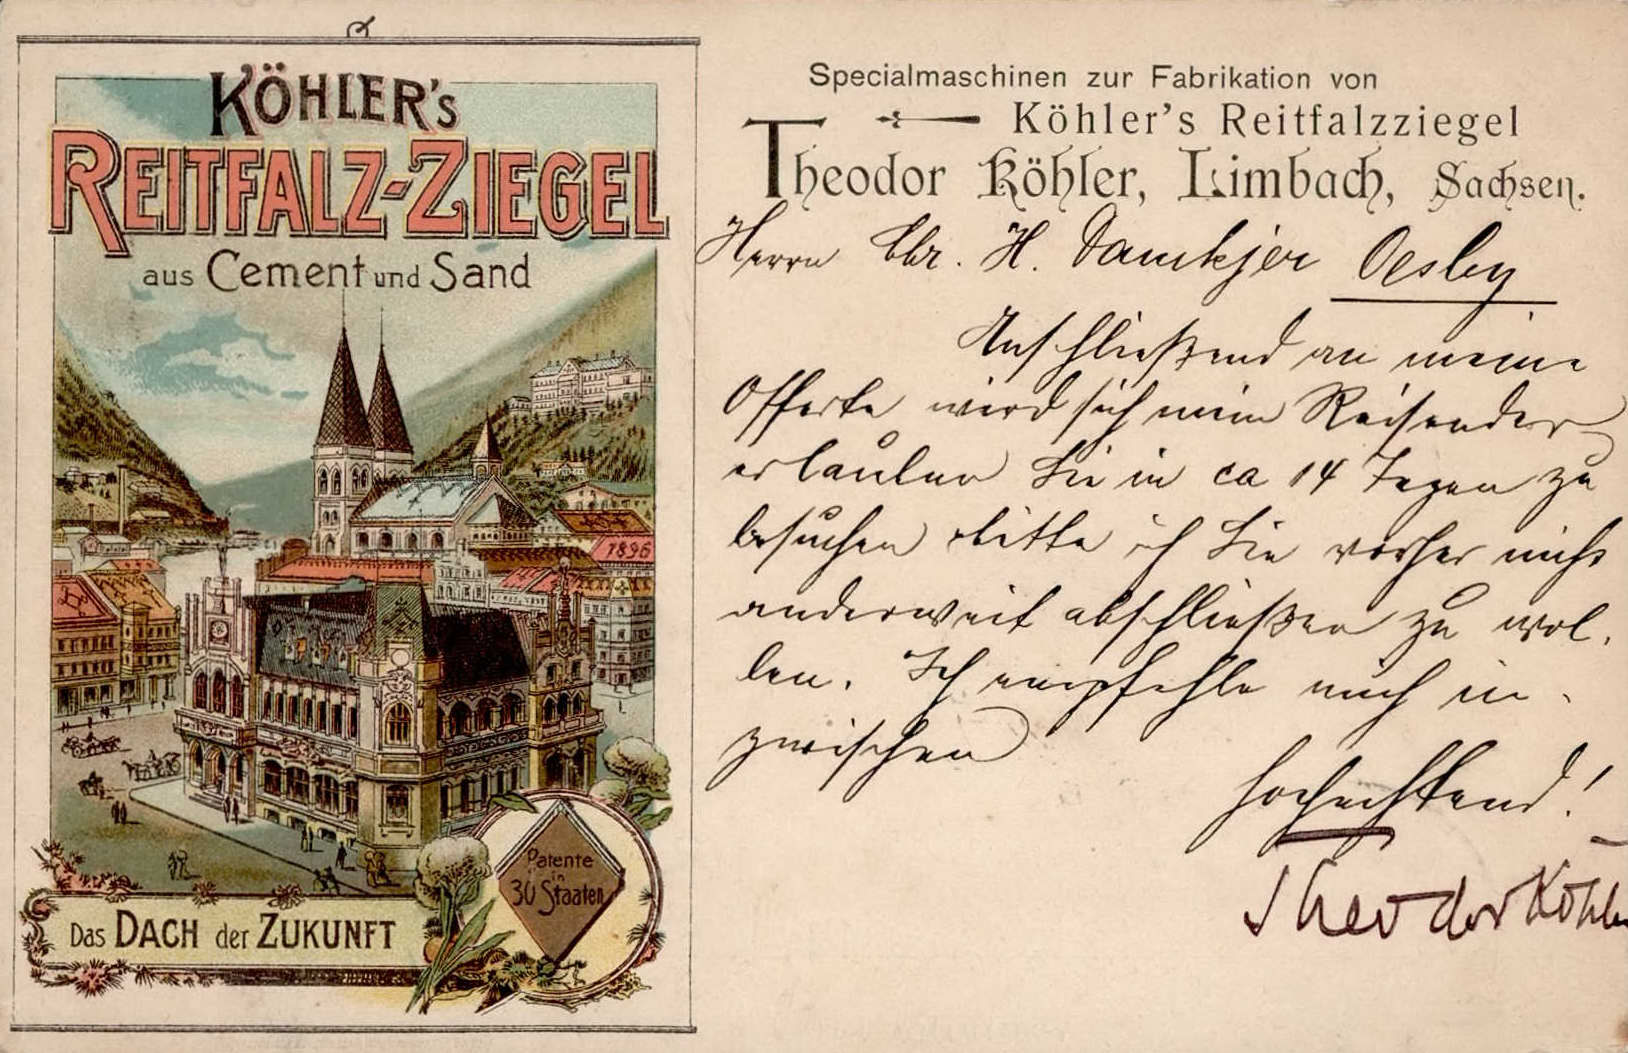 KÖHLER's
REITFALZ-ZIEGEL
aus Cement und Sand
1896
Patente
in
30 Staaten
Das DACH der ZUKUNFT
Specialmaschinen zur Fabrikation von
Köhler's Reitfalzziegel
Theodor Köhler, Limbach, Sachsen.
Herrn Chr. H. Damkjer Oesby
Anschließend an meine
Offerte wird sich mein Reisender
erlauben Sie in ca 14 Tagen zu
besuchen bitte ich Sie vorher nicht
anderweit abschließen zu wol-
len. Ich empfehle mich in-
zwischen
hochachtend!
Theodor Köhler